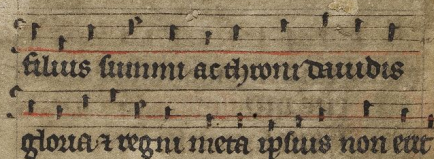 filius summi ac throni dauidis
gloria ⁊ regni meta ipsius non erit